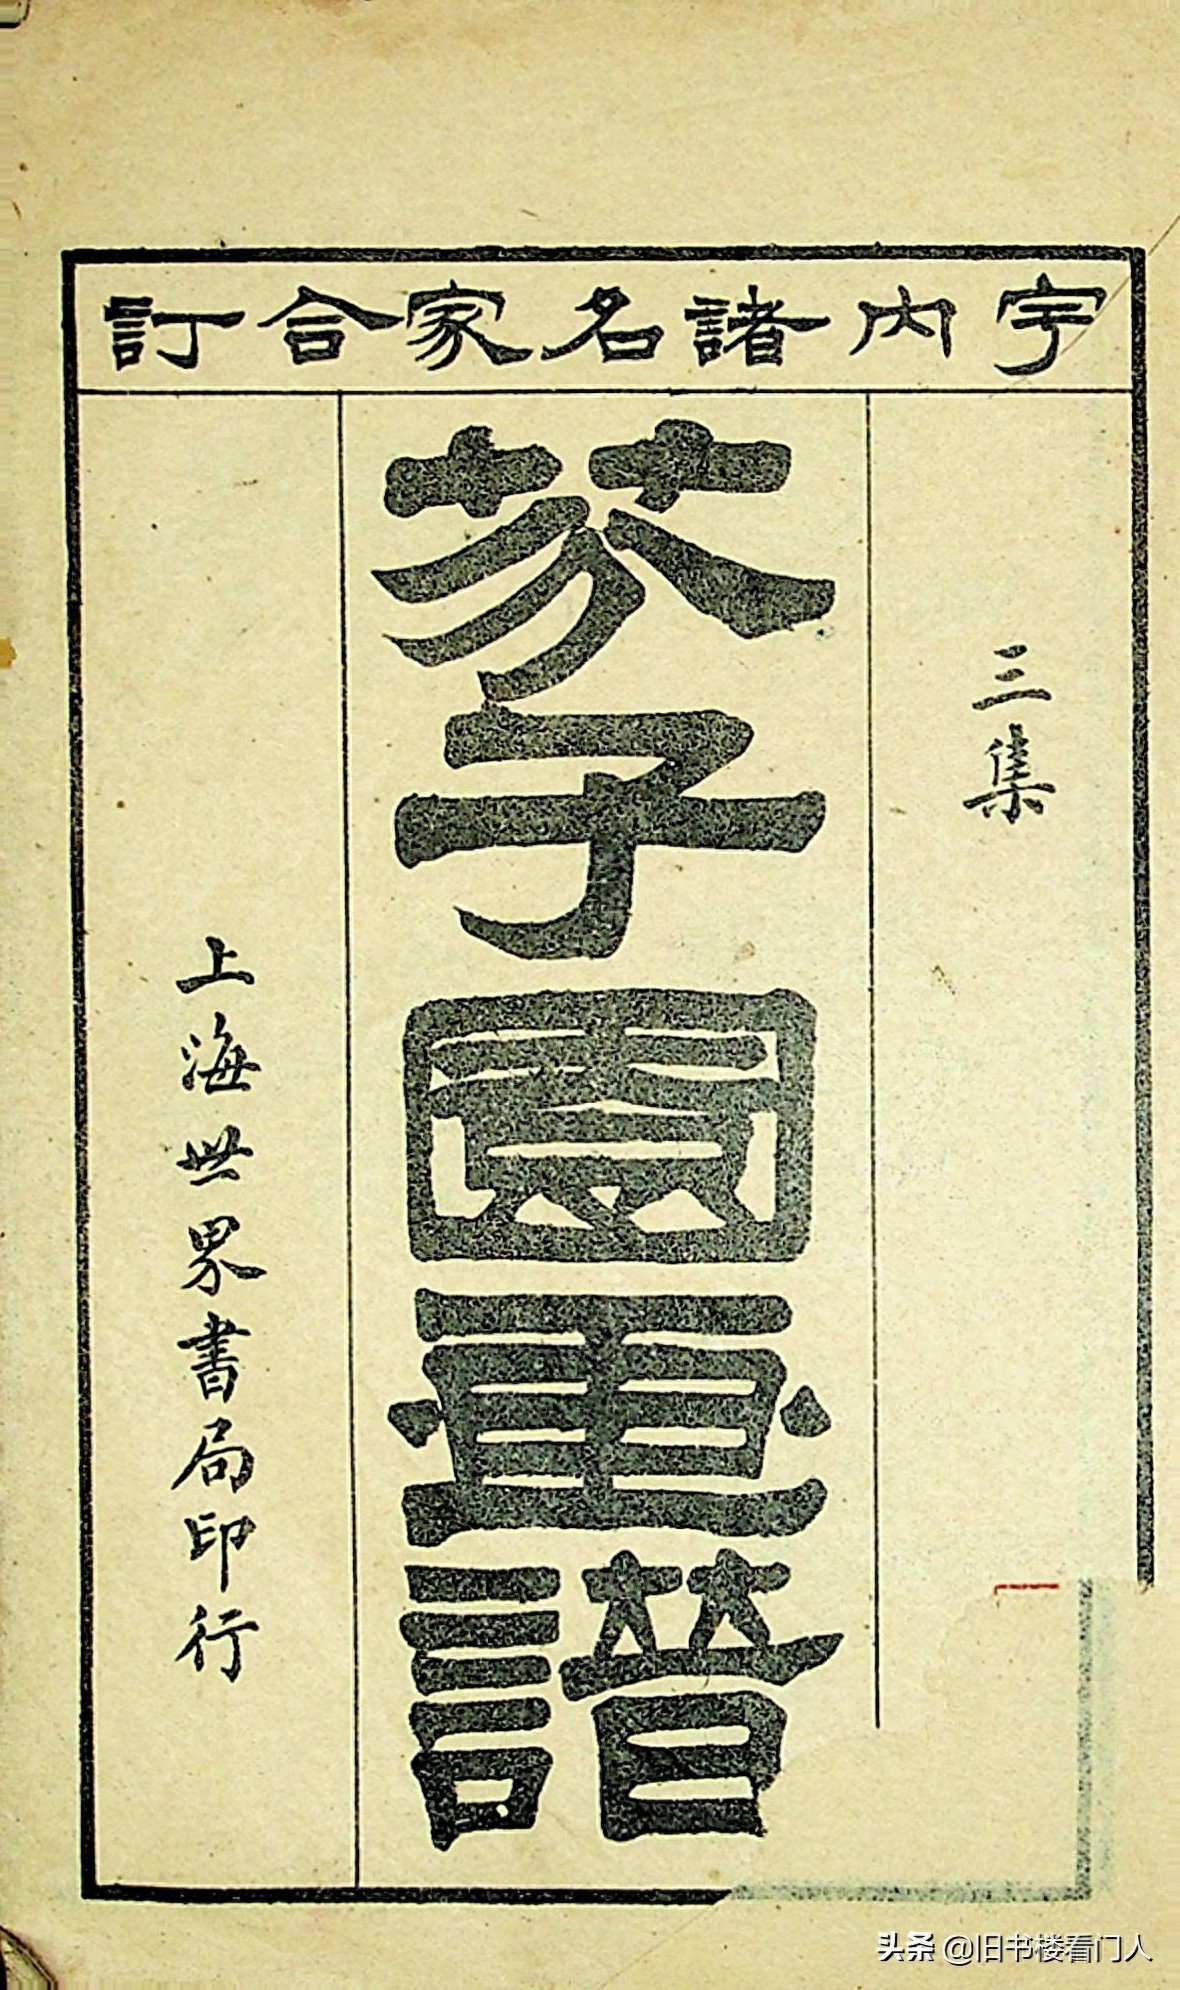 宇內諸名家合訂
三集
芥子園畫譜
上海世界書局印行
头条 @旧书楼看门人